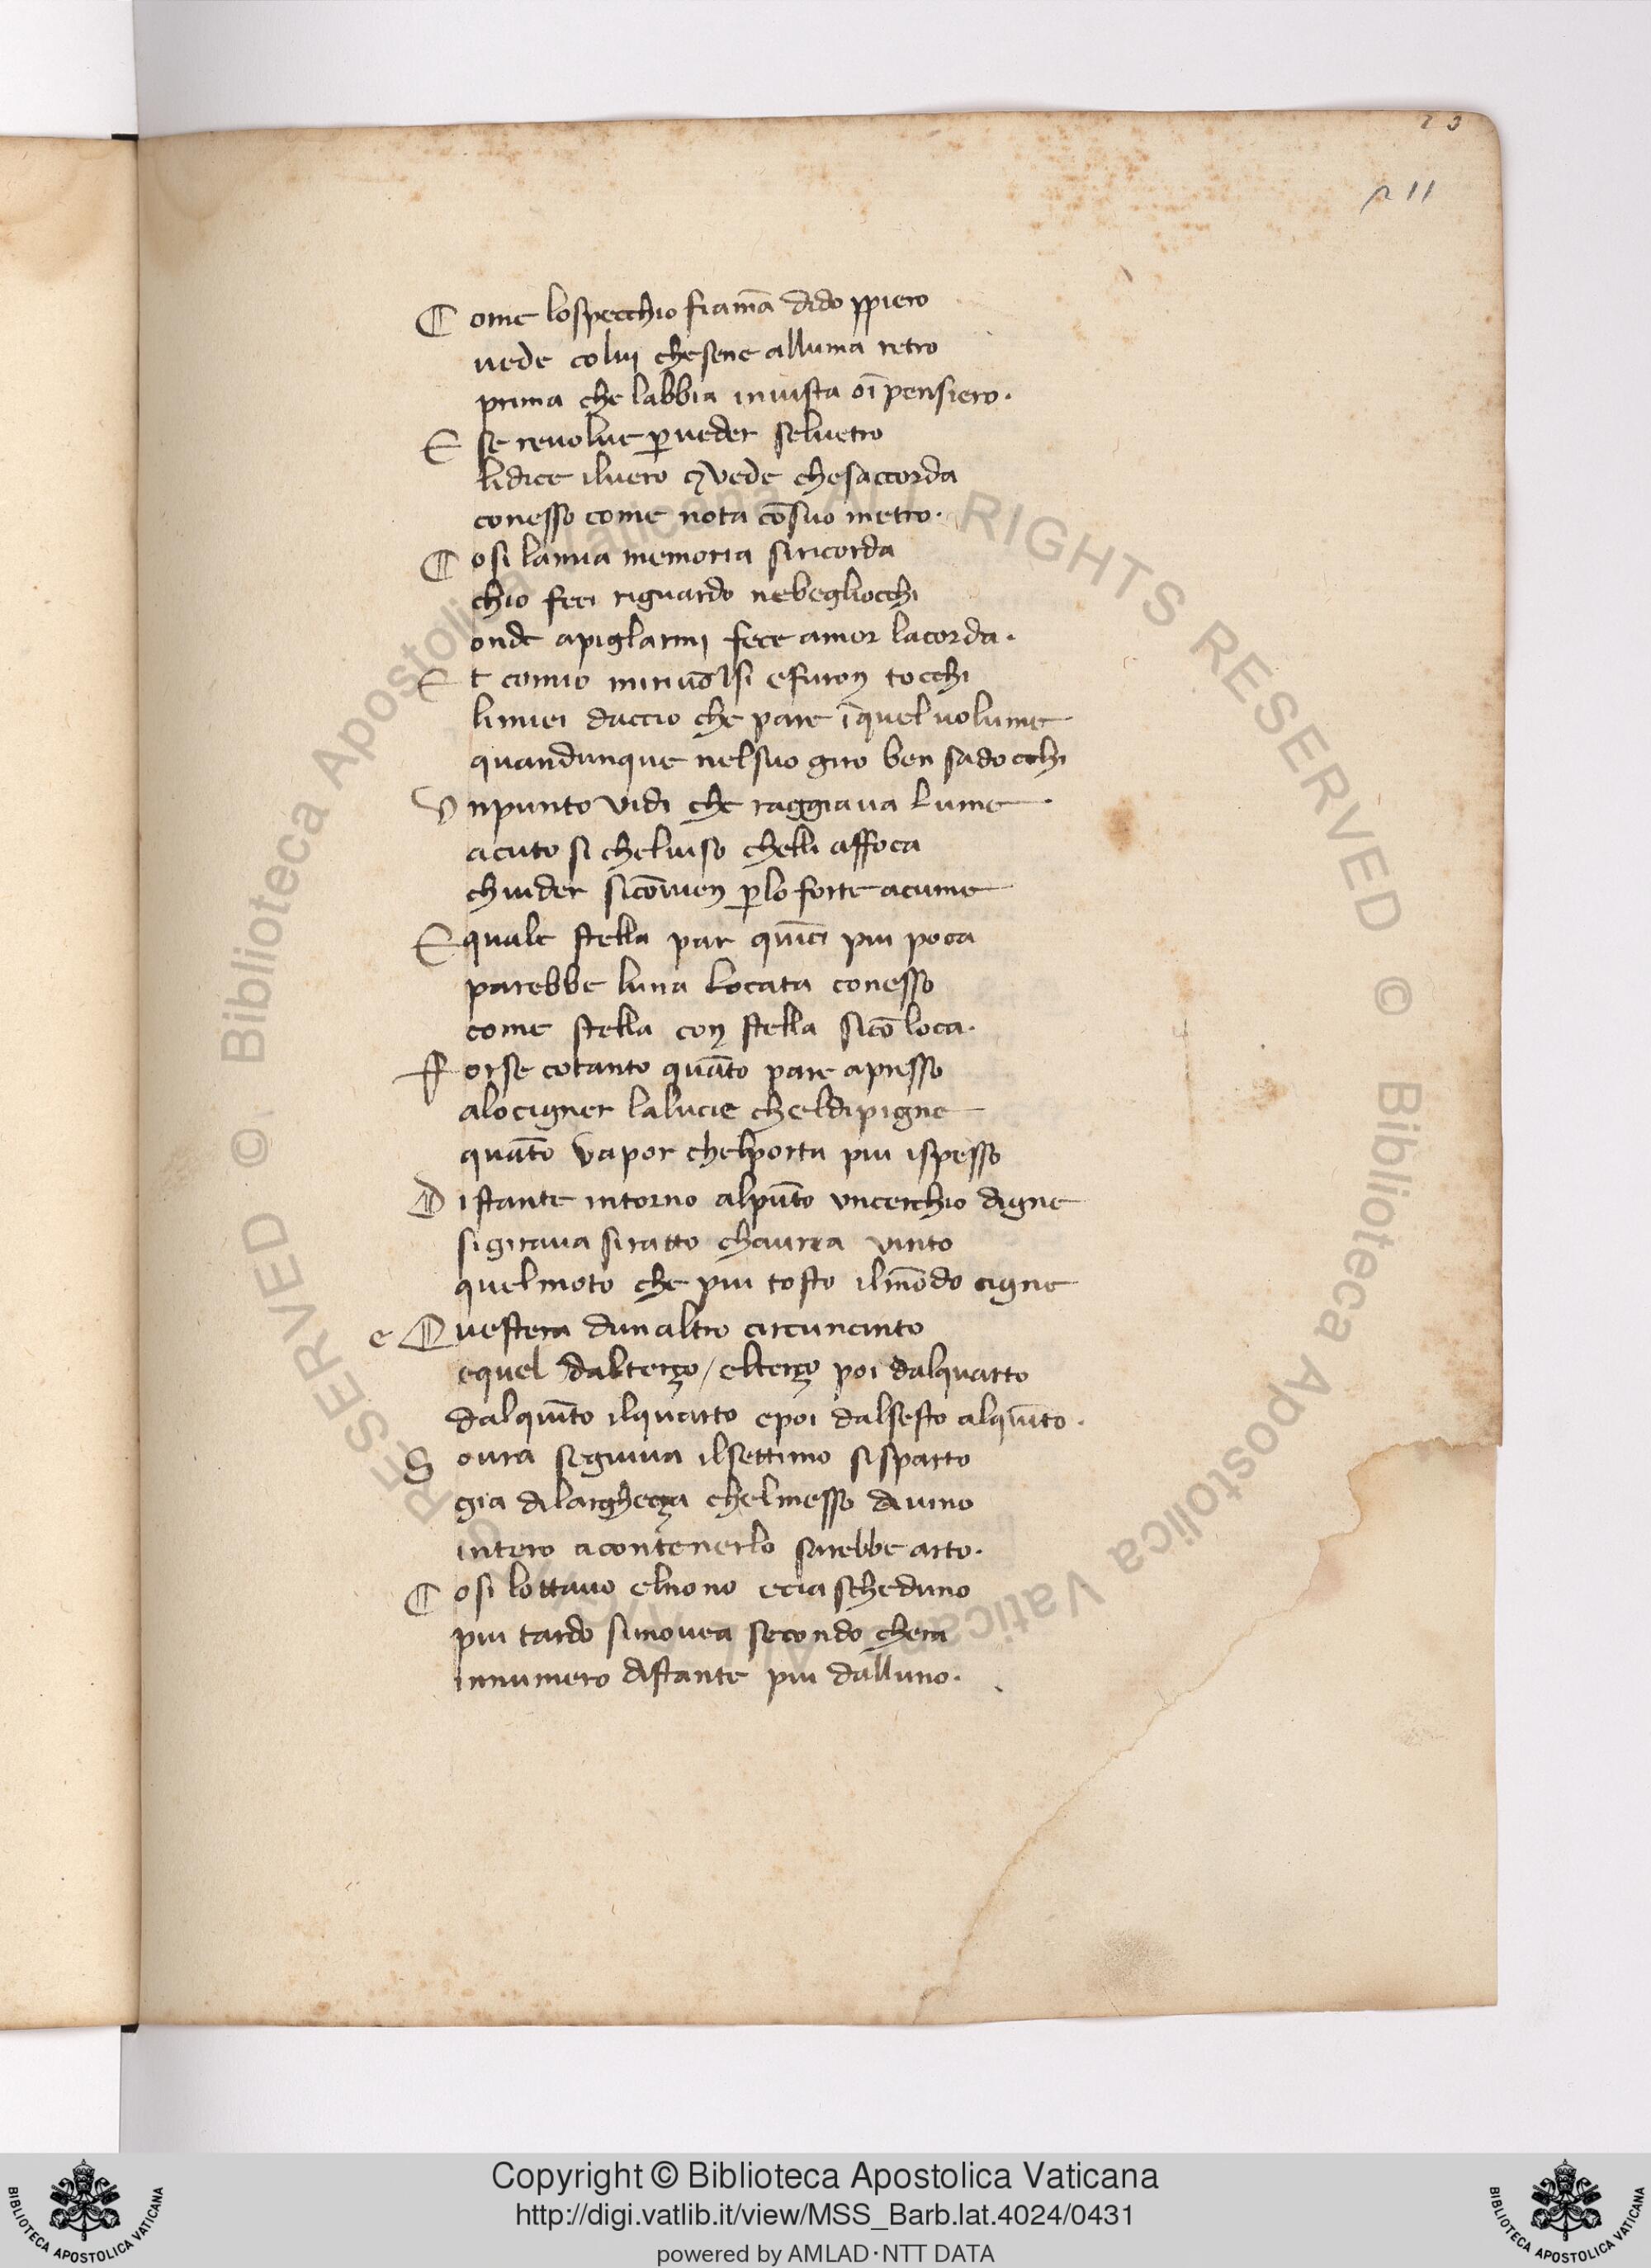 23
211
Come lospecchio fiamā dido ppiero
uede coluj chesene alluma retro
prima che labbia inuista oī pensiero.
E se reuolue ꝑueder seluetro
lidice iluero ⁊vede chesaccorda
conesso come nota cōsuo metro.
Cosi lamia memoria siricorda
chio feci riguardo nebegliocchi
onde apiglarmj fece amor lacorda.
Et comio miriuolsi efuron tocchi
limiei daccio che pare īquel uolume
quandunque nelsuo giro ben sadocchi
Vnpunto vidi che raggiaua lume.
acuto si cheluiso chelli affoca
chiuder sicōuien ꝑlo forte acume
E quale stella par quīci piu poca
parebbe luna locata conesso
come stella con stella sicōloca.
Forse cotanto quāto pare apresso
alocigner lalucie cheldipigne
quāto vapor chelporta piu ispesso
Distante intorno alpūto vncerchio digne
sigiraua siratto chaurea vinto
quelmoto che piu tosto ilmōdo cigne
e Questera dunaltro circuncinto
equel dalterço / elterço poi dalquarto
dalquīto ilquarto epoi dalsesto alquīto.
Soura seguiua ilsettimo sisparto
gia dilargheça chelmesso diuino
intero acontenerlo sarebbe arto.
Cosi lottauo elnono eciascheduno
piu tardo simouea secondo chera
innumero distante piu dalluno.
© Biblioteca Apostolica Vaticana ALL RIGHTS RESERVED © Biblioteca Apostolica Vaticana ALL RIGHTS RESERVED
Copyright © Biblioteca Apostolica Vaticana
http://digi.vatlib.it/view/MSS_Barb.lat.4024/0431
powered by AMLAD·NTT DATA
BIBLIOTECA APOSTOLICA VATICANA
BIBLIOTECA APOSTOLICA VATICANA